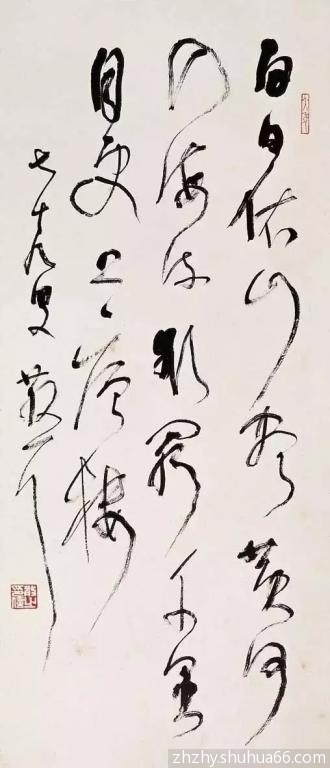 白日依山尽黄河
入海流欲穷千里
目更上一层楼
七十九叟散之
zhzhy.shuhua66.com